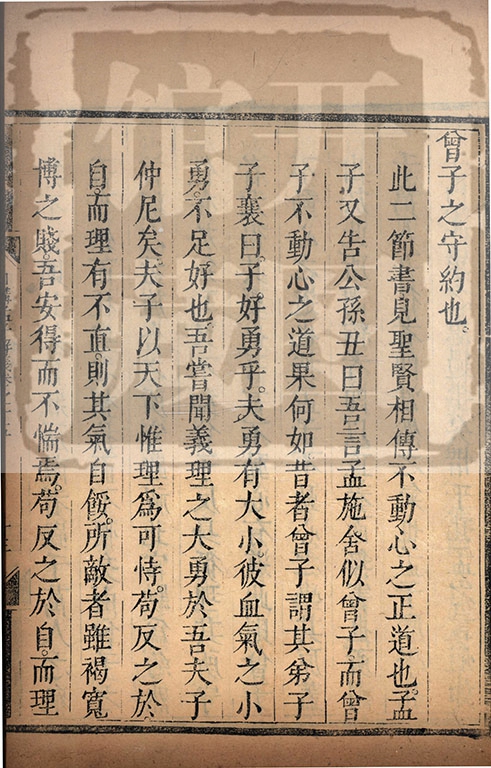 曾子之守約也。
此二節書見聖賢相傳不動心之正道也。孟
子又告公孫丑曰吾言孟施舍似曾子。而曾
子不動心之道果何如。昔者曾子謂其弟子
子襄曰。子好勇乎。夫勇有大小。彼血氣之小
勇。不足好也。吾嘗聞義理之大勇於吾夫子
仲尼矣夫子以天下惟理爲可恃。苟反之於
自。而理有不直。則其氣自餒。所敵者雖褐寬
博之賤。吾安得而不惴焉。苟反之於自。而理